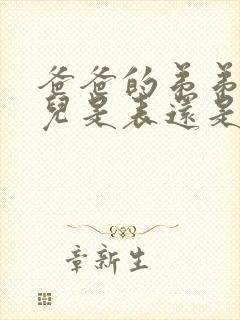 爸爸的弟弟
兒是表還是
章新生